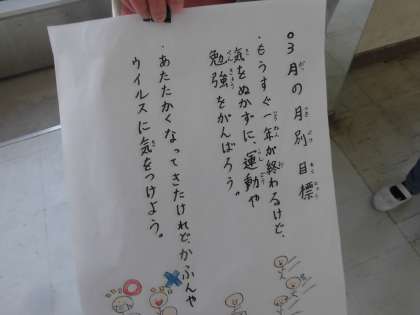 ○3月の月別目標
・もうすぐ一年が終わるけど、
気をぬかずに、運動や
勉強をがんばろう。
・あたたかくなってきたけれど、かふんや
ウイルスに気をつけよう。